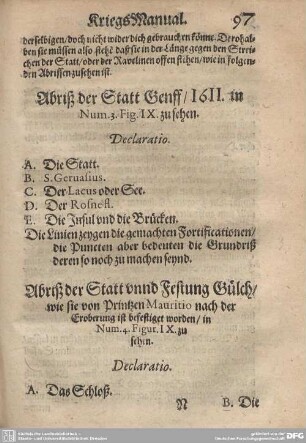 KriegsManual. 97
derselbigen/doch nicht wider dich gebrauchen könne. Derohal-
ben sie müssen also steht daß sie in der Länge gegen den Strei-
chen der Statt/oder der Ravelinen offen stehen/wie in folgen-
den Abrissen zusehen ist.
Abriß der Statt Genff/1611. in
Num.3. Fig. IX. zu sehen.
Declaratio.
A. Die Statt.
B. S. Geruasius.
C. Der Lacus oder See.
D. Der Rosnest.
E. Die Insul vnd die Brücken.
Die Linien zeygen die gemachten Fortificationen/
die Puncten aber bedeuten die Grundriß
deren so noch zu machen seynd.
Abriß der Statt vnnd Festung Gülch/
wie sie von Printzen Mauritio nach der
Eroberung ist befestiget worden/in
Num.4. Figur. IX. zu
sehen.
Declaratio.
A. Das Schloß.
N B. Die